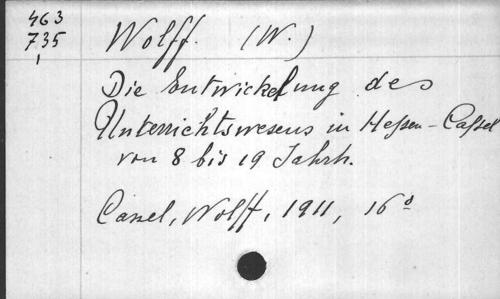 463
735
Wolff. (W.)
Die Entwickelung des
Unterrichtswesens in Heſsen-Caſsel
von 8 bis 19 Jahrh.
Cassel, Wolff, 1911, 16°